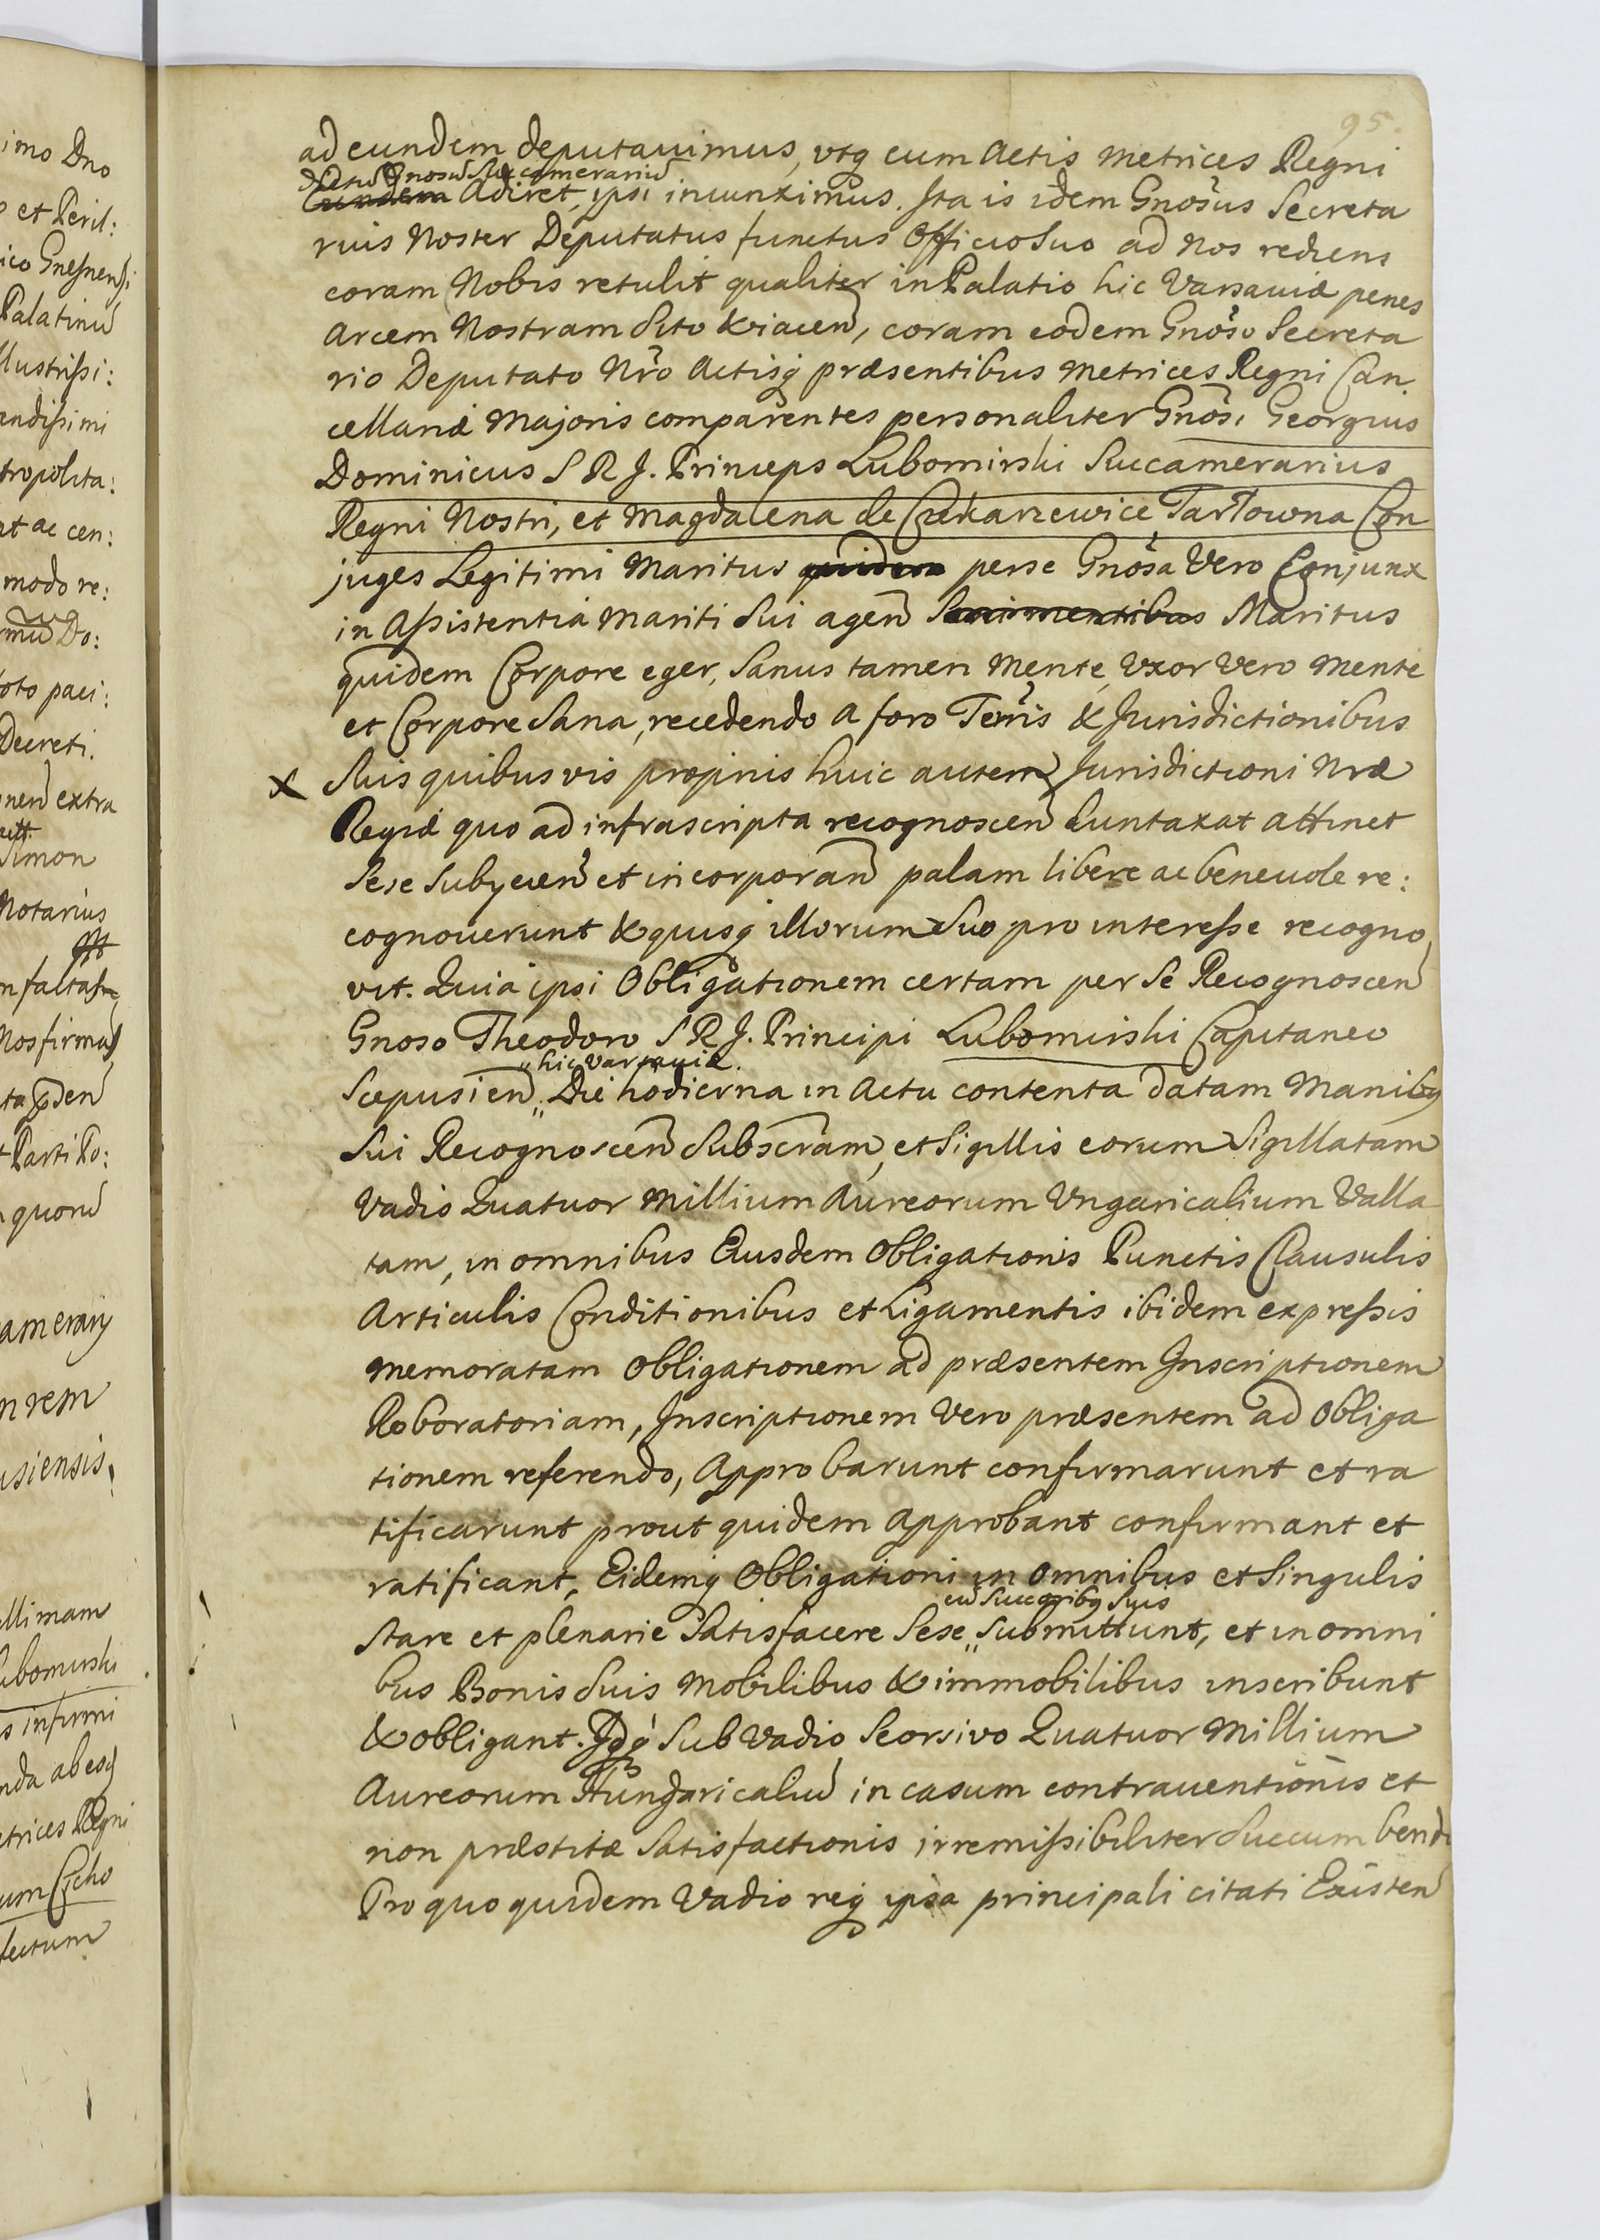 95.
ad eundem deputauimus, vtq cum Actis Metrices Regni
dictũ Gnosũ Succamerariũ
Eundem Adiret, ipsi iniunximus. Ita is idem Gnosus Secreta
rius Noster Deputatus functus Officio Suo ad Nos rediens
coram Nobis retulit qualiter in Palatio hic Varsauiæ penes
Arcem Nostram Sito & iacen, coram eodem Gnoso Secreta
rio Deputato Nro Actisq præsentibus Metrices Regni Can
cellariæ Majoris comparentes personaliter Gnosi Georgius
Dominicus S R J. Princeps Lubomirski Succamerarius
Regni Nostri, et Magdalena de Czekarzewice Tarłowna Con
juges Legitimi Maritus quidem per se Gnosa Vero Conjunx
in Assistentia Mariti Sui agen Sani mentibus Maritus
quidem Corpore eger, Sanus tamen Mente, Vxor Vero Mente
et Corpore Sana, recedendo a foro Terris & Jurisdictionibus
x Suis quibusvis proprijs huic autem Jurisdictioni Nræ
Regiæ quo ad infrascripta recognoscen duntaxat attinet
Sese Subycien et incorporan palam libere ac beneuole re:
cognouerunt & quisq illorum Suo pro interesse recogno
vit. Quia ipsi Obligationem certam per Se Recognoscen
Gnoso Theodoro S R J. Principi Lubomirski Capitaneo
hic Varsauiæ.
Scepusien Die hodierna in Actu contenta datam Manibq
Sui Recognoscen Subscram, et Sigillis eorum Sigillatam
Vadio Quatuor Millium Aureorum Vngaricalium Valla
tam, in omnibus Eiusdem Obligationis Punctis Clausulis
Articulis Conditionibus et Ligamentis ibidem expressis
Memoratam Obligationem ad præsentem Inscriptionem
Roboratoriam, Inscriptionem Vero præsentem ad Obliga
tionem referendo, Approbarunt confirmarunt et ra
tificarunt prout quidem Approbant confirmant et
ratificant, Eidemq Obligationi in omnibus et Singulis
cũ Succoribq Suis
Stare et plenarie Satisfacere Sese Submittunt, et in omni
bus Bonis Suis Mobilibus & immobilibus inscribunt
& obligant. Idq Sub Vadio Seorsivo Quatuor Millium
Aureorum Hungaricaliũ in casum contrauentionis et
non præstitæ Satisfactionis irremissibiliter Succumbendi
Pro quo quidem Vadio req ipsa principali citati Existen
imo Dno
et Peril:
ico Gnesnensi
Palatinũ
llustrissi:
endissimi
tropolita:
at ac cen:
modo re:
Do:
oto paci:
Decreti.
extra
Simon
Notarius
Nos firmas
Parti Po:
quorũ
amerarij
n rem
usiensis,
llimam
ubomirski
s infirmi
nda ab esq
etrices Regni
um Cicho
fectum